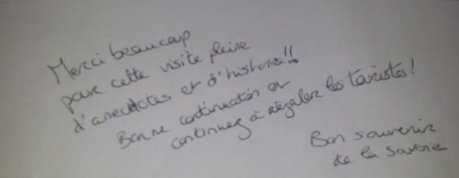 Merci beaucoup
pour cette visite pleine
d'anecdotes et d'histoire!!
Bonne continuation et
continuez à régaler les touristes!
Bon souvenir
de la Savoie